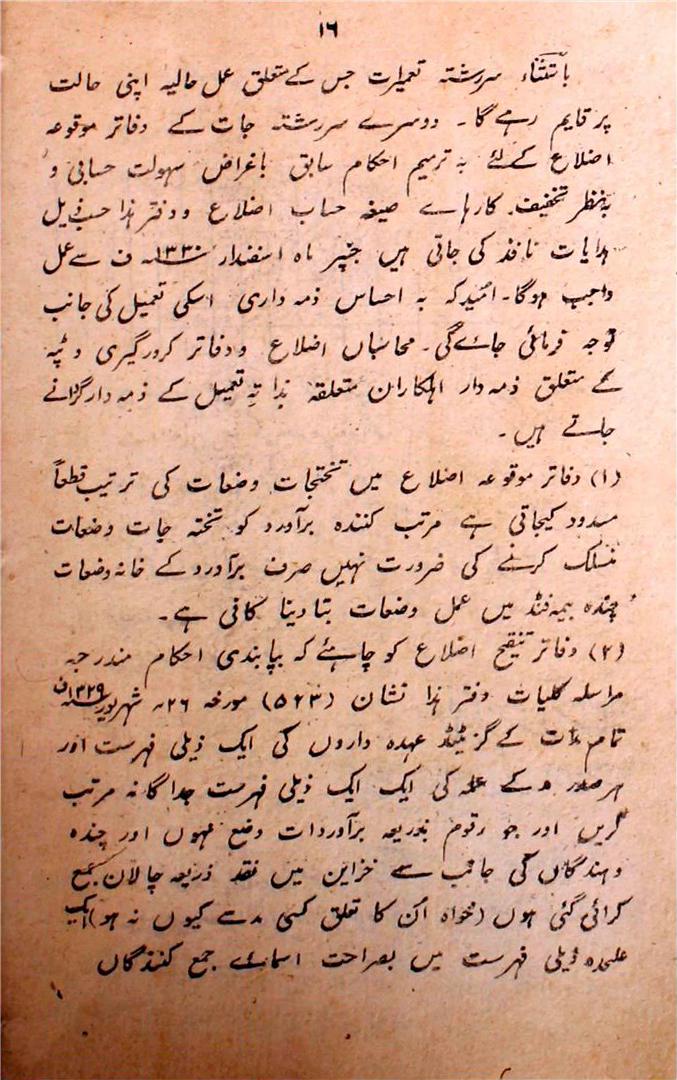 ۱۶
باستثناء سررشتہ تعمیرات جس کے متعلق عمل حالیہ اپنی حالت
پر قایم رہے گا۔ دوسرے سررشتہ جات کے دفاتر موقوعہ
اضلاع کے لئے بہ ترمیم احکام سابق باغراض سہولت حسابی و
بنظر تخفیف کارہاے صیغہ حساب اضلاع و دفتر ہذا حسب ذیل
ہدایات نافذ کی جاتی ہیں جنپر ماہ اسفندار ۱۳۳۰ ف سے عمل
واجب ہوگا۔ امید کہ بہ احساس ذمہ داری اسکی تعمیل کی جانب
توجہ فرمائی جاے گی۔ محاسبان اضلاع و دفاتر کرورگیری و ٹپہ
کے متعلق ذمہ دار اہلکاران متعلقہ ہذا تعمیل کے ذمہ دار گردانے
جاتے ہیں۔
(۱) دفاتر موقوعہ اضلاع میں تختجات وضعات کی ترتیب قطعاً
مسدود کیجاتی ہے مرتب کنندہ برآورد کو تختہ جات وضعات
منسلک کرنے کی ضرورت نہیں صرف برآورد کے خانہ وضعات
چندہ بیمہ فنڈ میں عمل وضعات بتا دینا کافی ہے۔
(۲) دفاتر تنقیح اضلاع کو چاہئے کہ بپابندی احکام مندرجہ
مراسلہ کلیات دفتر ہذا نشان (۵۲۳) مورخہ ۲۶۔ شہریور ۱۳۲۹ ف
تمام مدات کے گزیٹیڈ عہدہ داروں کی ایک ذیلی فہرست اور
ہر صدر مد کے عملہ کی ایک ایک ذیلی فہرست جداگانہ مرتب
کریں اور جو رقوم بذریعہ برآوردات وضع ہوں اور چندہ
دہندگاں کی جانب سے خزاین میں نقد ذریعہ چالان جمع
کرائی گئی ہوں (خواہ اُن کا تعلق کسی مد سے کیوں نہ ہو) ایک
علیحدہ ذیلی فہرست میں بصراحت اسمائے جمع کنندگاں